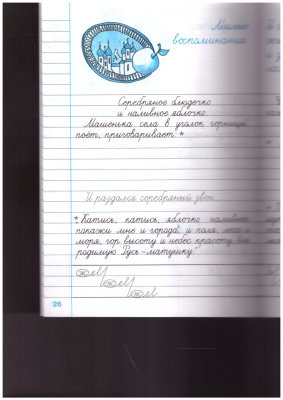 Мамины
воспоминания
Серебряное блюдечко
и наливное яблочко.
Машенька села в уголок горницы,
поёт, приговаривает: *
И раздался серебряный звон...
*„Катись, катись, яблочко наливное,
покажи мне и города, и поля, леса и
моря, гор высоту и небес красоту, всю
родимую Русь-матушку.“
26